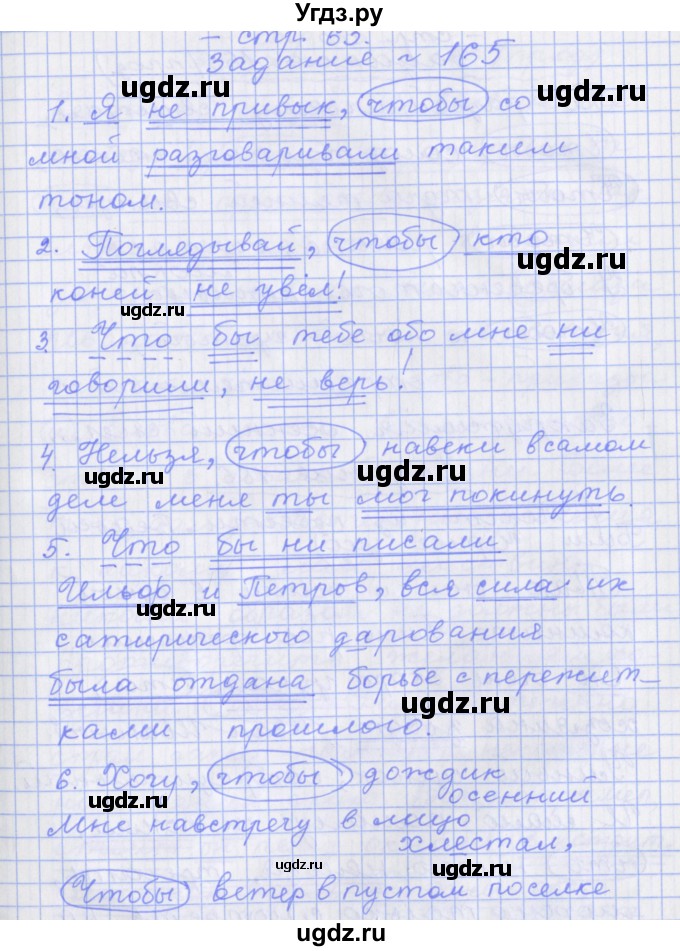 Угдз.ру
- стр. 65.
Задание № 165
1. Я не привык, чтобы со
мной разговаривали таким
тоном.
2. Поглядывай, чтобы кто
коней не увёл!
3. Что бы тебе обо мне ни
говорили, не верь!
4. Нельзя, чтобы навеки в самом
деле меня ты мог покинуть.
5. Что бы ни писали
Ильф и Петров, вся сила их
сатирического дарования
была отдана борьбе с пережит-
ками прошлого.
6. Хочу, чтобы дождик
осенний
Мне навстречу в лицо
хлестал,
Чтобы ветер в пустом поселке
ugdz.ru
ugdz.ru
ugdz.ru
ugdz.ru
ugdz.ru
ugdz.ru
ugdz.ru
ugdz.ru
ugdz.ru
ugdz.ru
ugdz.ru
ugdz.ru
ugdz.ru
ugdz.ru